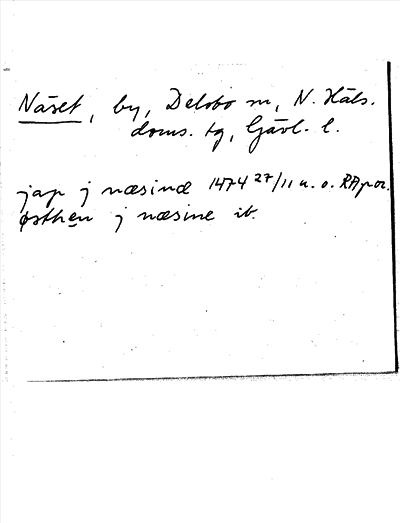 Näset, by, Delsbo sn, N. Häls.
doms. tg, Gävl. l.
jap j næsinæ 1474 27/11 u. o. RAp or.
østhen j næsine ib.